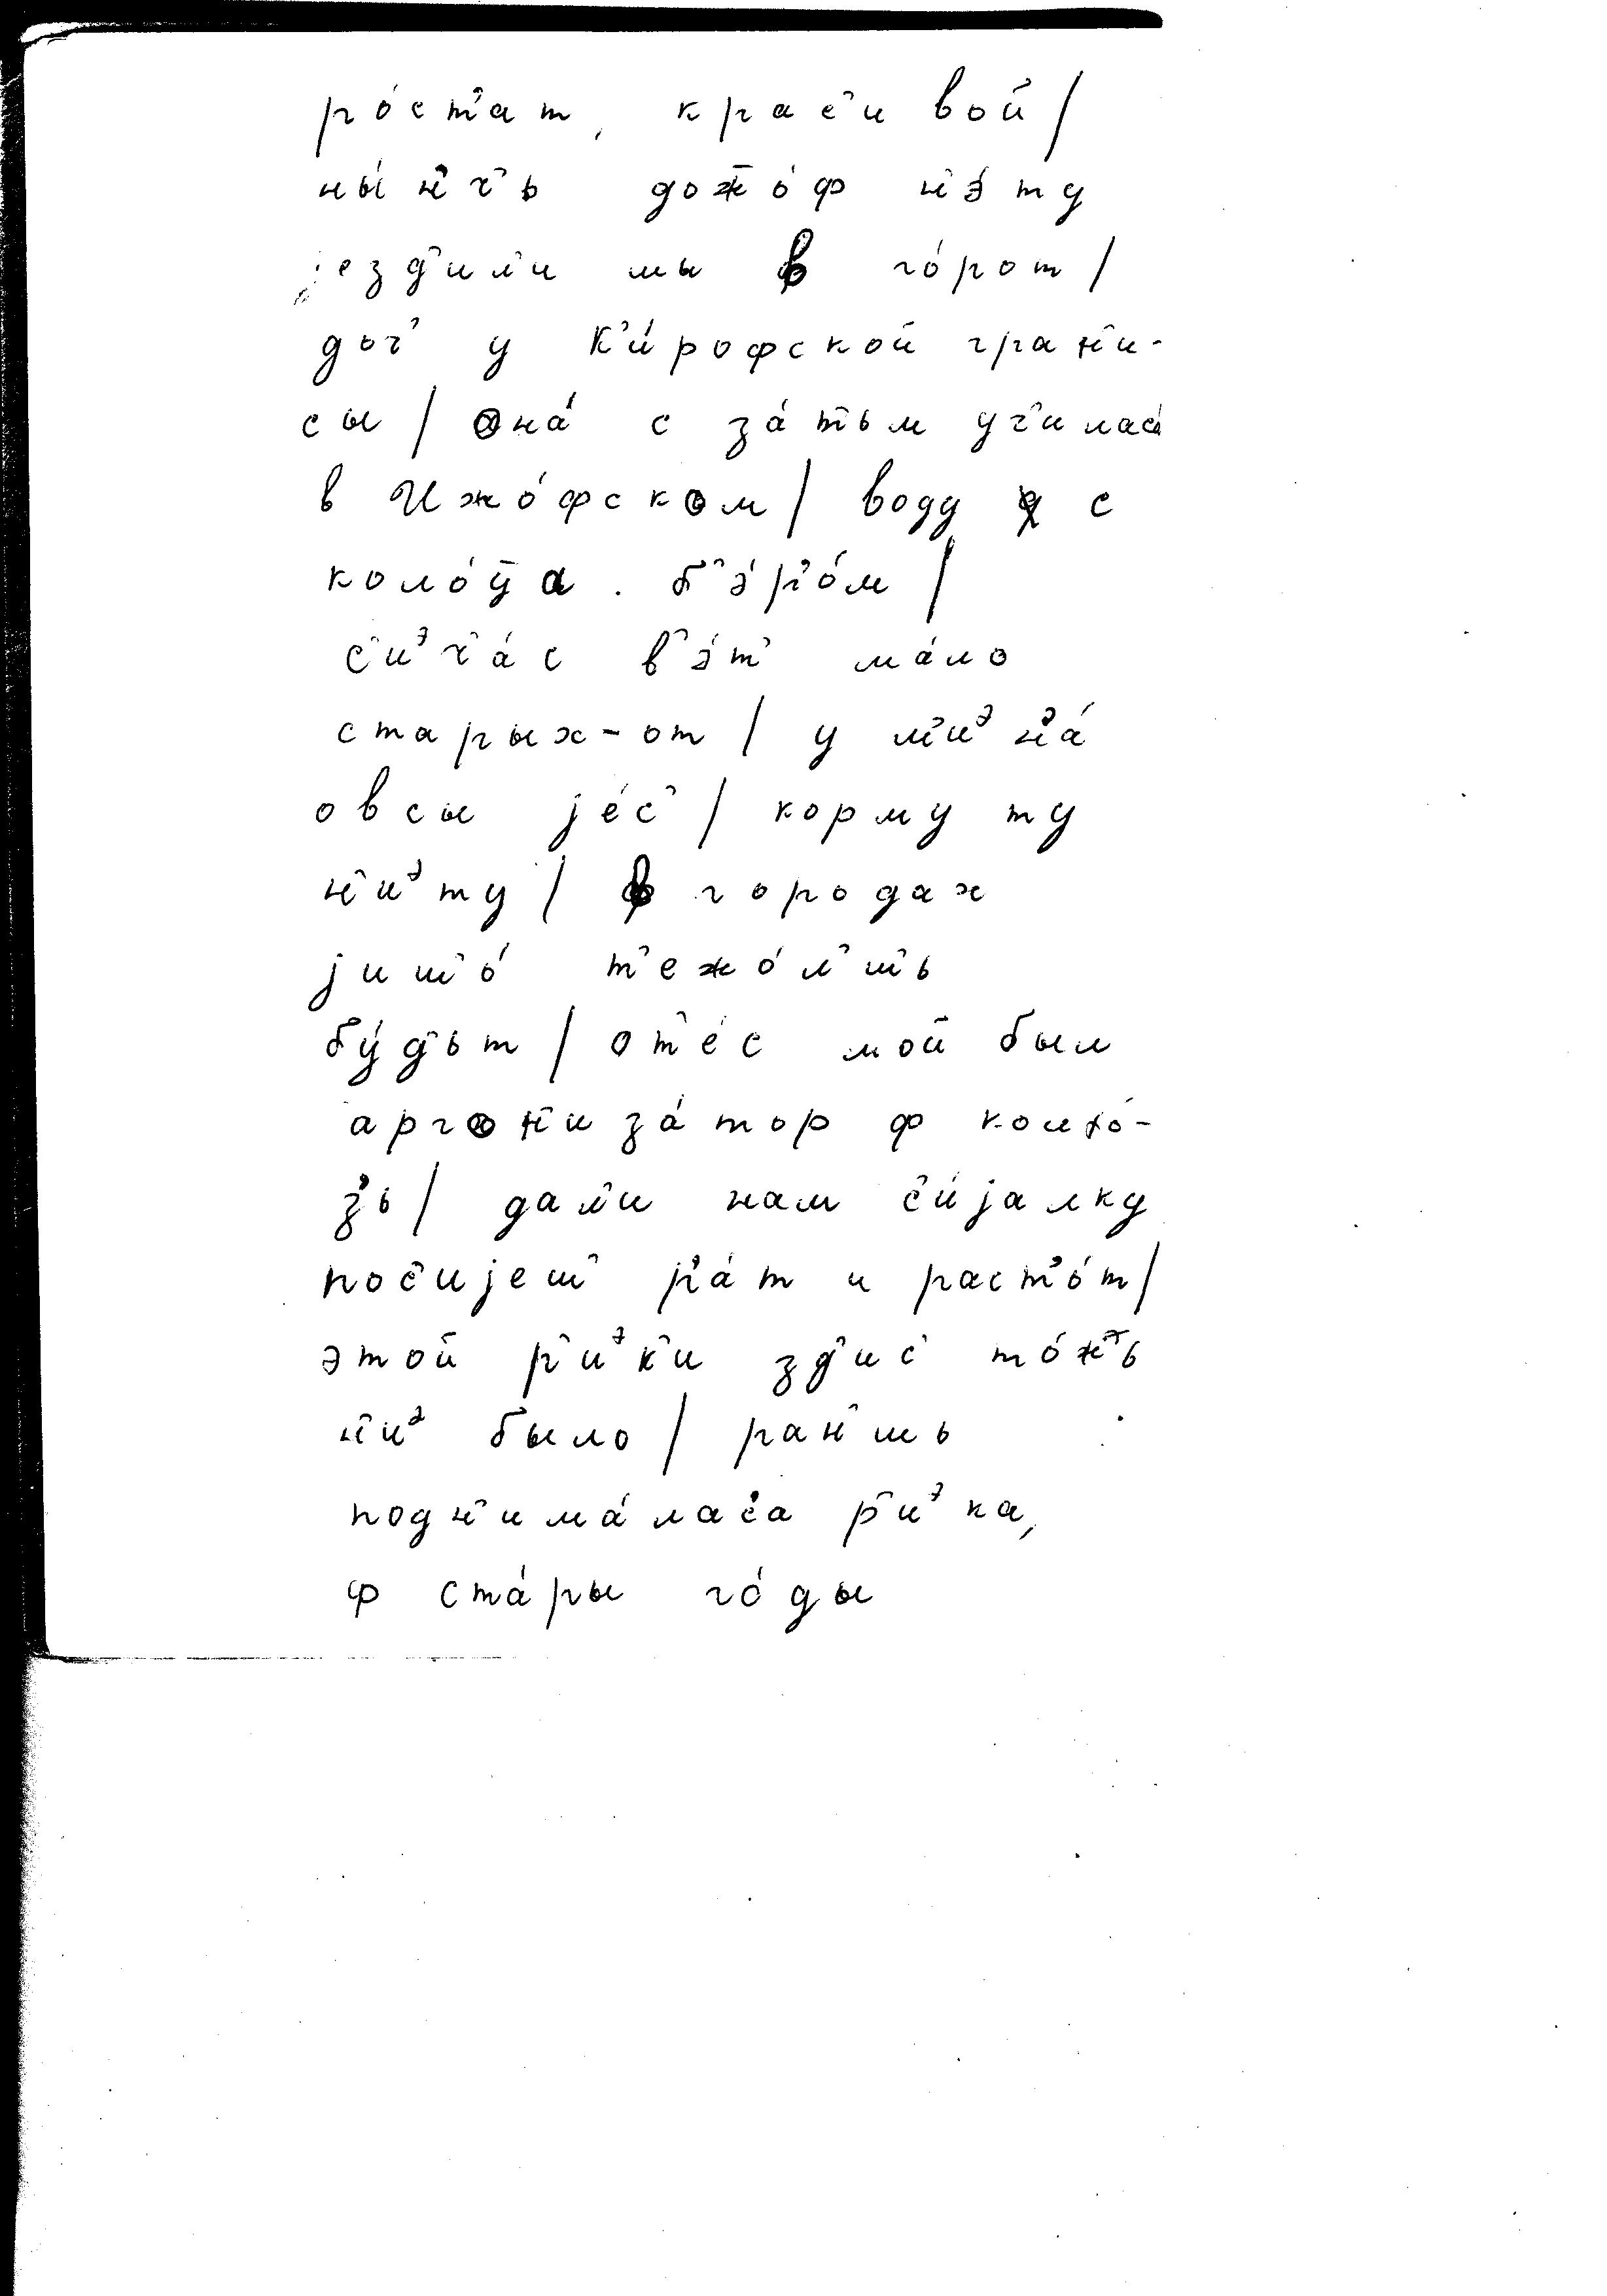 ро́ст'ат, крас'и вой /
ны́н'ч'ь дож̄о́ф н'э́ту
jезд'ил'и мы в го́рот /
доч' у К'и́рофской гран'и-
сы / она́ с за́т'ьм уч'илас'
в Ижо́фском / воду с
коло́ца. б'э́р'о́м /
с'иэч'а́с в'э́т' ма́ло
старых-от / у м'иэн'а́
овсы jе́с' / корму ту
н'иэту / в городах
jиш'о́ т'ежо́л'шь
бу́д'ьт / от'е́с мой был
арган'иза́тор ф колхо́-
з'ь / дал'и нам с'и́jалку
пос'иjеш' р'а́т и раст'о́т /
этой р'иэк'и зд'ис' то́жъ
н'иэ было / ран'шь
подн'има́лас'а р'иэка,
ф ста́ры го́ды